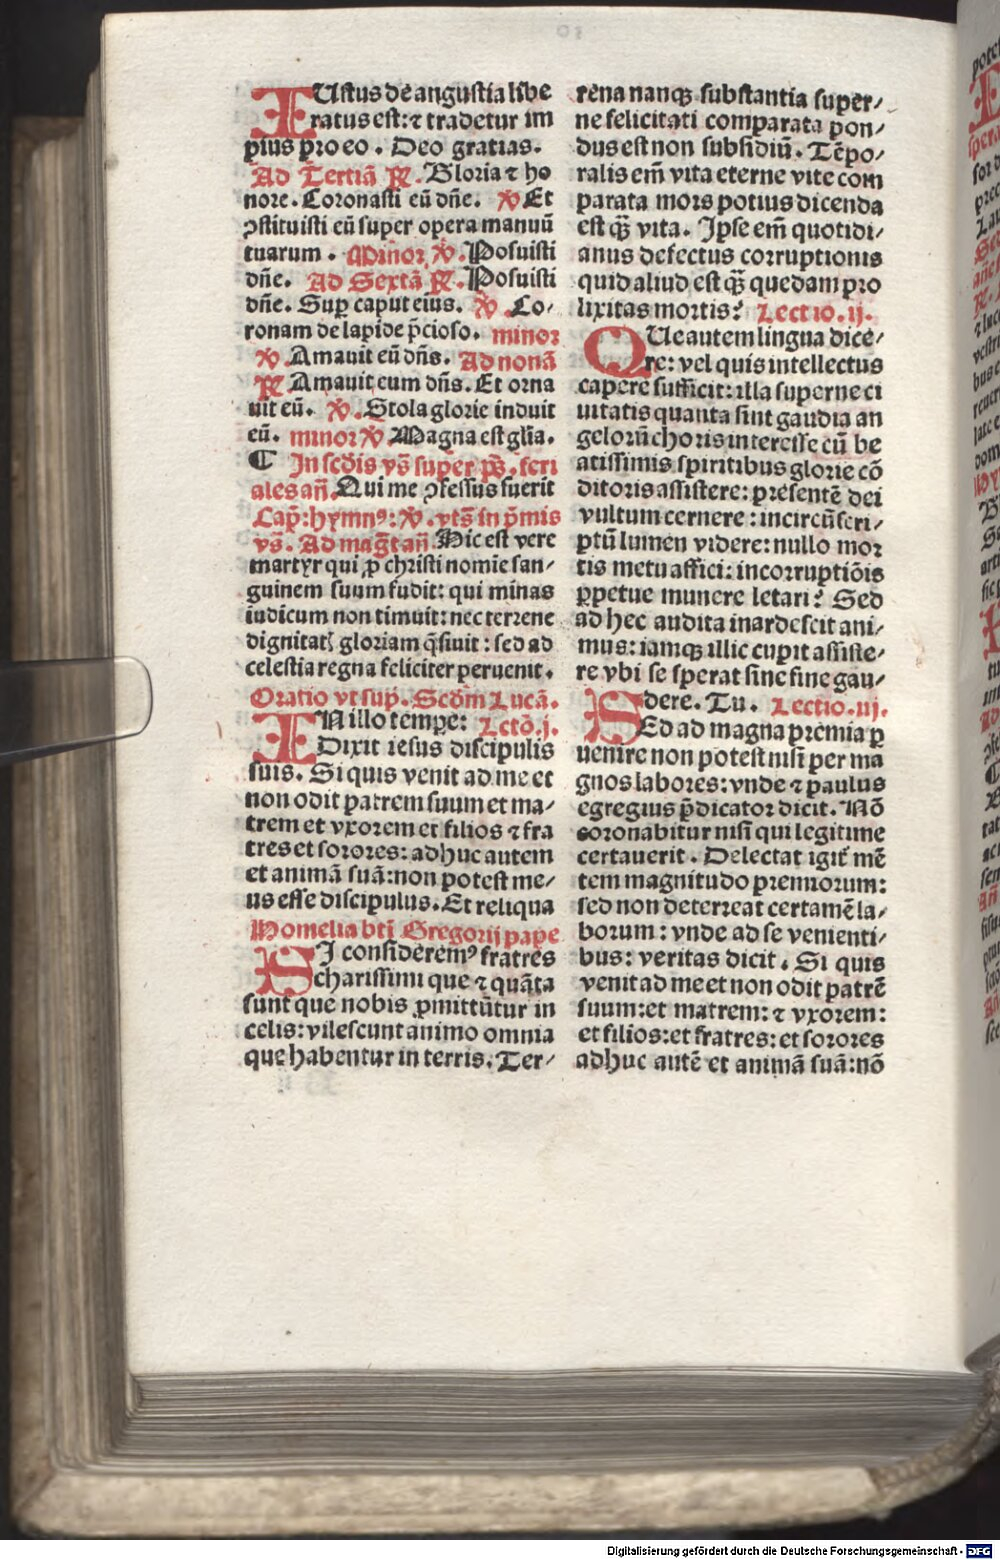 IUstus de angustia libe
ratus est: ⁊ tradetur im
pius pro eo. Deo gratias.
Ad Tertiã ℟. Gloria ⁊ ho
nore. Coronasti eũ dñe. ℣ Et
ꝯstituisti eũ super opera manuũ
tuarum. Minor ℣. Posuisti
dñe. Ad Sextã ℟. Posuisti
dñe. Suꝑ caput eius. ℣. Co/
ronam de lapide p̃cioso. minor
℣. Amauit eũ dñs. Ad nonã
℟ Amauit eum dñs. Et orna
uit eũ. ℣. Stola glorie induit
eũ. minor ℣ Magna est gl̃ia.
¶ In scd̃is vs̃ super ps̃. feri
ales añ. Qui me ꝯfessus fuerit
Cap̃: hymnꝰ: ℣. vts̃ in p̃mis
vs̃. Ad mag̃t añ. Hic est vere
martyr qui ꝓ christi nomĩe san/
guinem suum fudit: qui minas
iudicum non timuit: nec terrene
dignitatꝭ gloriam q̃siuit: sed ad
celestia regna feliciter peruenit.
Oratio vt sup̃. Scd̃m Lucã.
IN illo tempꝛe: Lctõ.j.
Dixit iesus discipulis
suis. Si quis venit ad me et
non odit patrem suum et ma/
trem et vxorem et filios ⁊ fra
tres et sorores: adhuc autem
et animã suã: non potest me/
us esse discipulus. Et reliqua
Homelia bt̃i Gregorij pape
SI consideremꝰ fratres
charissimi que ⁊ quãta
sunt que nobis ꝓmittũtur in
celis: vilescunt animo omnia
que habentur in terris. Ter/
rena nanqꝫ substantia super/
ne felicitati comparata pon/
dus est non subsidiũ. Tẽpo/
ralis em̃ vita eterne vite com
parata mors potius dicenda
est q̃ꝫ vita. Ipse em̃ quotidi/
anus defectus corruptionis
quid aliud est q̃ꝫ quedam pro
lixitas mortis? Lectio.ij.
QUe autem lingua dice/
re: vel quis intellectus
capere sufficit: illa superne ci
uitatis quanta sint gaudia an
gelorũ choris interesse cũ be
atissimis spiritibus glorie cõ
ditoris assistere: presentẽ dei
vultum cernere: incircũscri/
ptũ lumen videre: nullo mor
tis metu affici: incorruptiõis
ꝑpetue munere letari? Sed
ad hec audita inardescit ani/
mus: iamqꝫ illic cupit assiste/
re vbi se sperat sine fine gau/
dere. Tu. Lectio.iij.
SEd ad magna premia ꝑ
uenire non potest nisi per ma
gnos labores: vnde ⁊ paulus
egregius p̃dicator dicit. Nõ
coronabitur nisi qui legitime
certauerit. Delectat igit̃ mẽ
tem magnitudo premiorum:
sed non deterreat certamẽ la/
borum: vnde ad se venienti/
bus: veritas dicit. Si quis
venit ad me et non odit patrẽ
suum: et matrem: ⁊ vxorem:
et filios: et fratres: et sorores
adhuc autẽ et animã suã: nõ
Digitalisierung gefördert durch die Deutsche Forschungsgemeinschaft - DFG